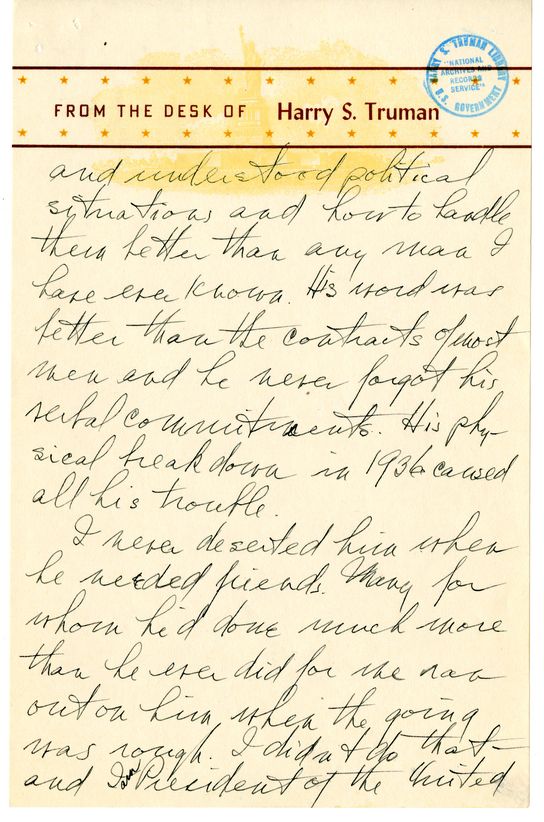 HARRY S. TRUMAN LIBRARY
"NATIONAL
ARCHIVES AND
RECORDS
SERVICE"
U.S. GOVERNMENT
FROM THE DESK OF Harry S. Truman
and understood political
situations and how to handle
them better than any man I
have ever known. His word was
better than the contracts of most
men and he never forgot his
verbal commitments. His phy-
sical breakdown in 1936 caused
all his trouble.
I never deserted him when
he needed friends. Many for
whom he'd done much more
than he ever did for me ran
out on him when the going
was rough. I didn't do that-
and I am President of the United